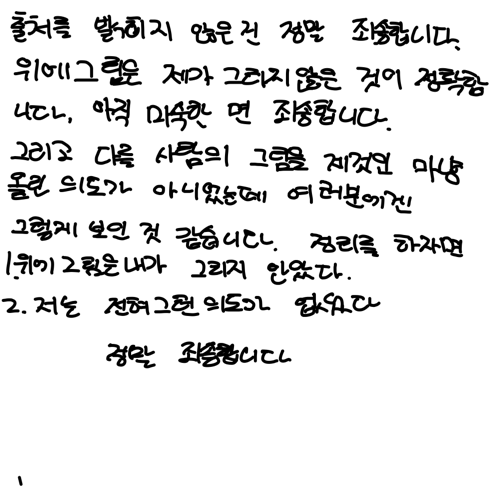 출처를 밝히지 않은건 정말 죄송합니다.
위에그림은 제가 그리지않은 것이 정확합
니다. 아직 미숙한 면 죄송합니다.
그리고 다른 사람의 그림을 제것인 마냥
올린 의도가 아니었는데 여러분에겐
그렇게 보인 것 같습니다. 정리를 하자면
1.위에그림은내가 그리지 안았다.
2. 저는 전혀그런의도가 없었다
정말 죄송합니다